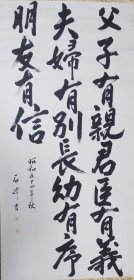 父子有親君臣有義
夫婦有別長幼有序
朋友有信
昭和五十四年秋